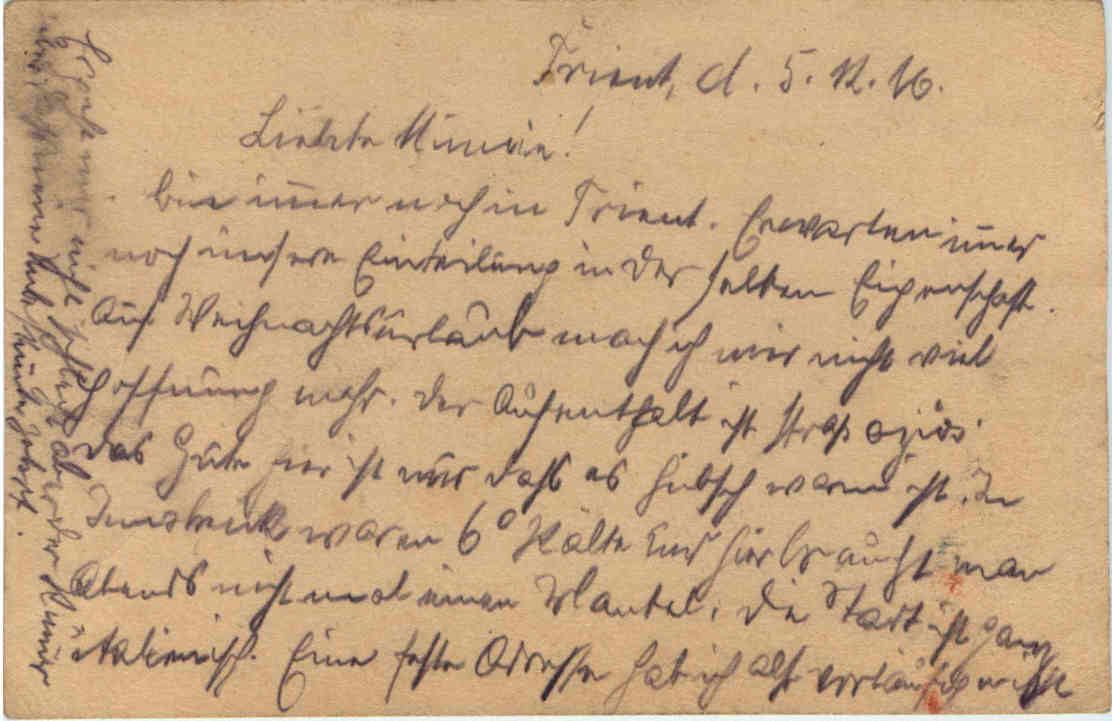 Trient, d. 5. 12. 16.
Liebste Minnie!
bin im̄er noch in Trient. Erwarten im̄er
noch unsere Einteilung in der selben Eigenschaft.
Auf Weihnachtsurlaub mach ich mir nicht viel
Hoffnung mehr. Der Aufenthalt ist strapaziös.
das Gute hier ist nur dass es hübsch warm ist. In
Innsbruck waren 6° Kälte und hier braucht man
Abends nicht mal einen Mantel. Die Stadt ist ganz
italienisch. Eine feste Adresse hab ich also vorläufig nicht
mir nicht aber der
meine